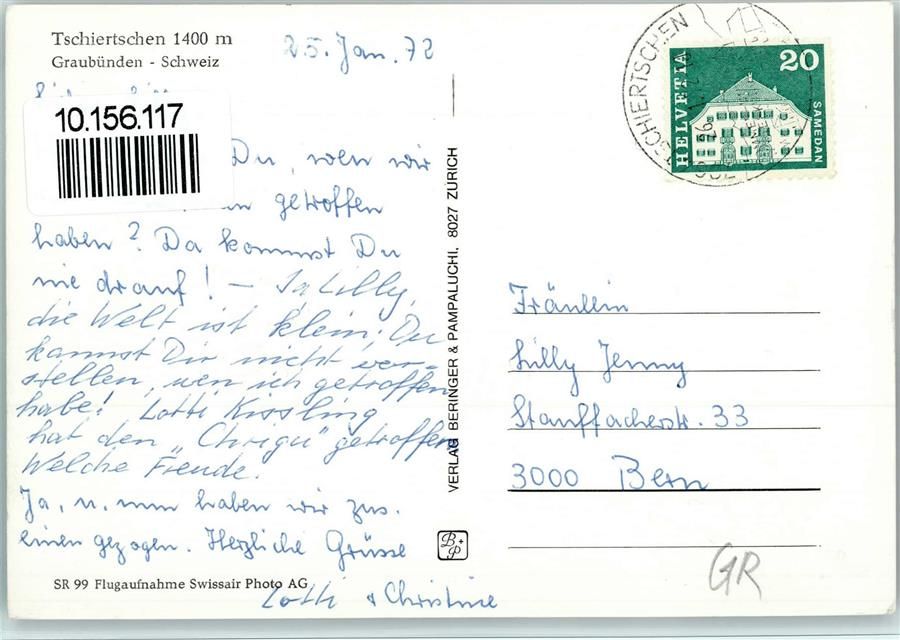 Tschiertschen 1400 m
Graubünden - Schweiz
25. Jan. 72
10.156.117
Du, wen wir
getroffen
haben? Da kommst Du
nie drauf! – Ja Lilly,
die Welt ist klein; Du
kannst Dir nicht vor-
stellen, wen ich getroffen
habe! Lotti Kissling
hat den „Chrigu" getroffen
Welche Freude.
Ja, u. nun haben wir zus.
einen gezogen. Herzliche Grüsse
Lotti + Christine
SR 99 Flugaufnahme Swissair Photo AG
VERLAG BERINGER & PAMPALUCHI, 8027 ZÜRICH
B+P
TSCHIERTSCHEN
HELVETIA
20
SAMEDAN
Fräulein
Lilly Jenny
Stauffacherstr. 33
3000 Bern
GR